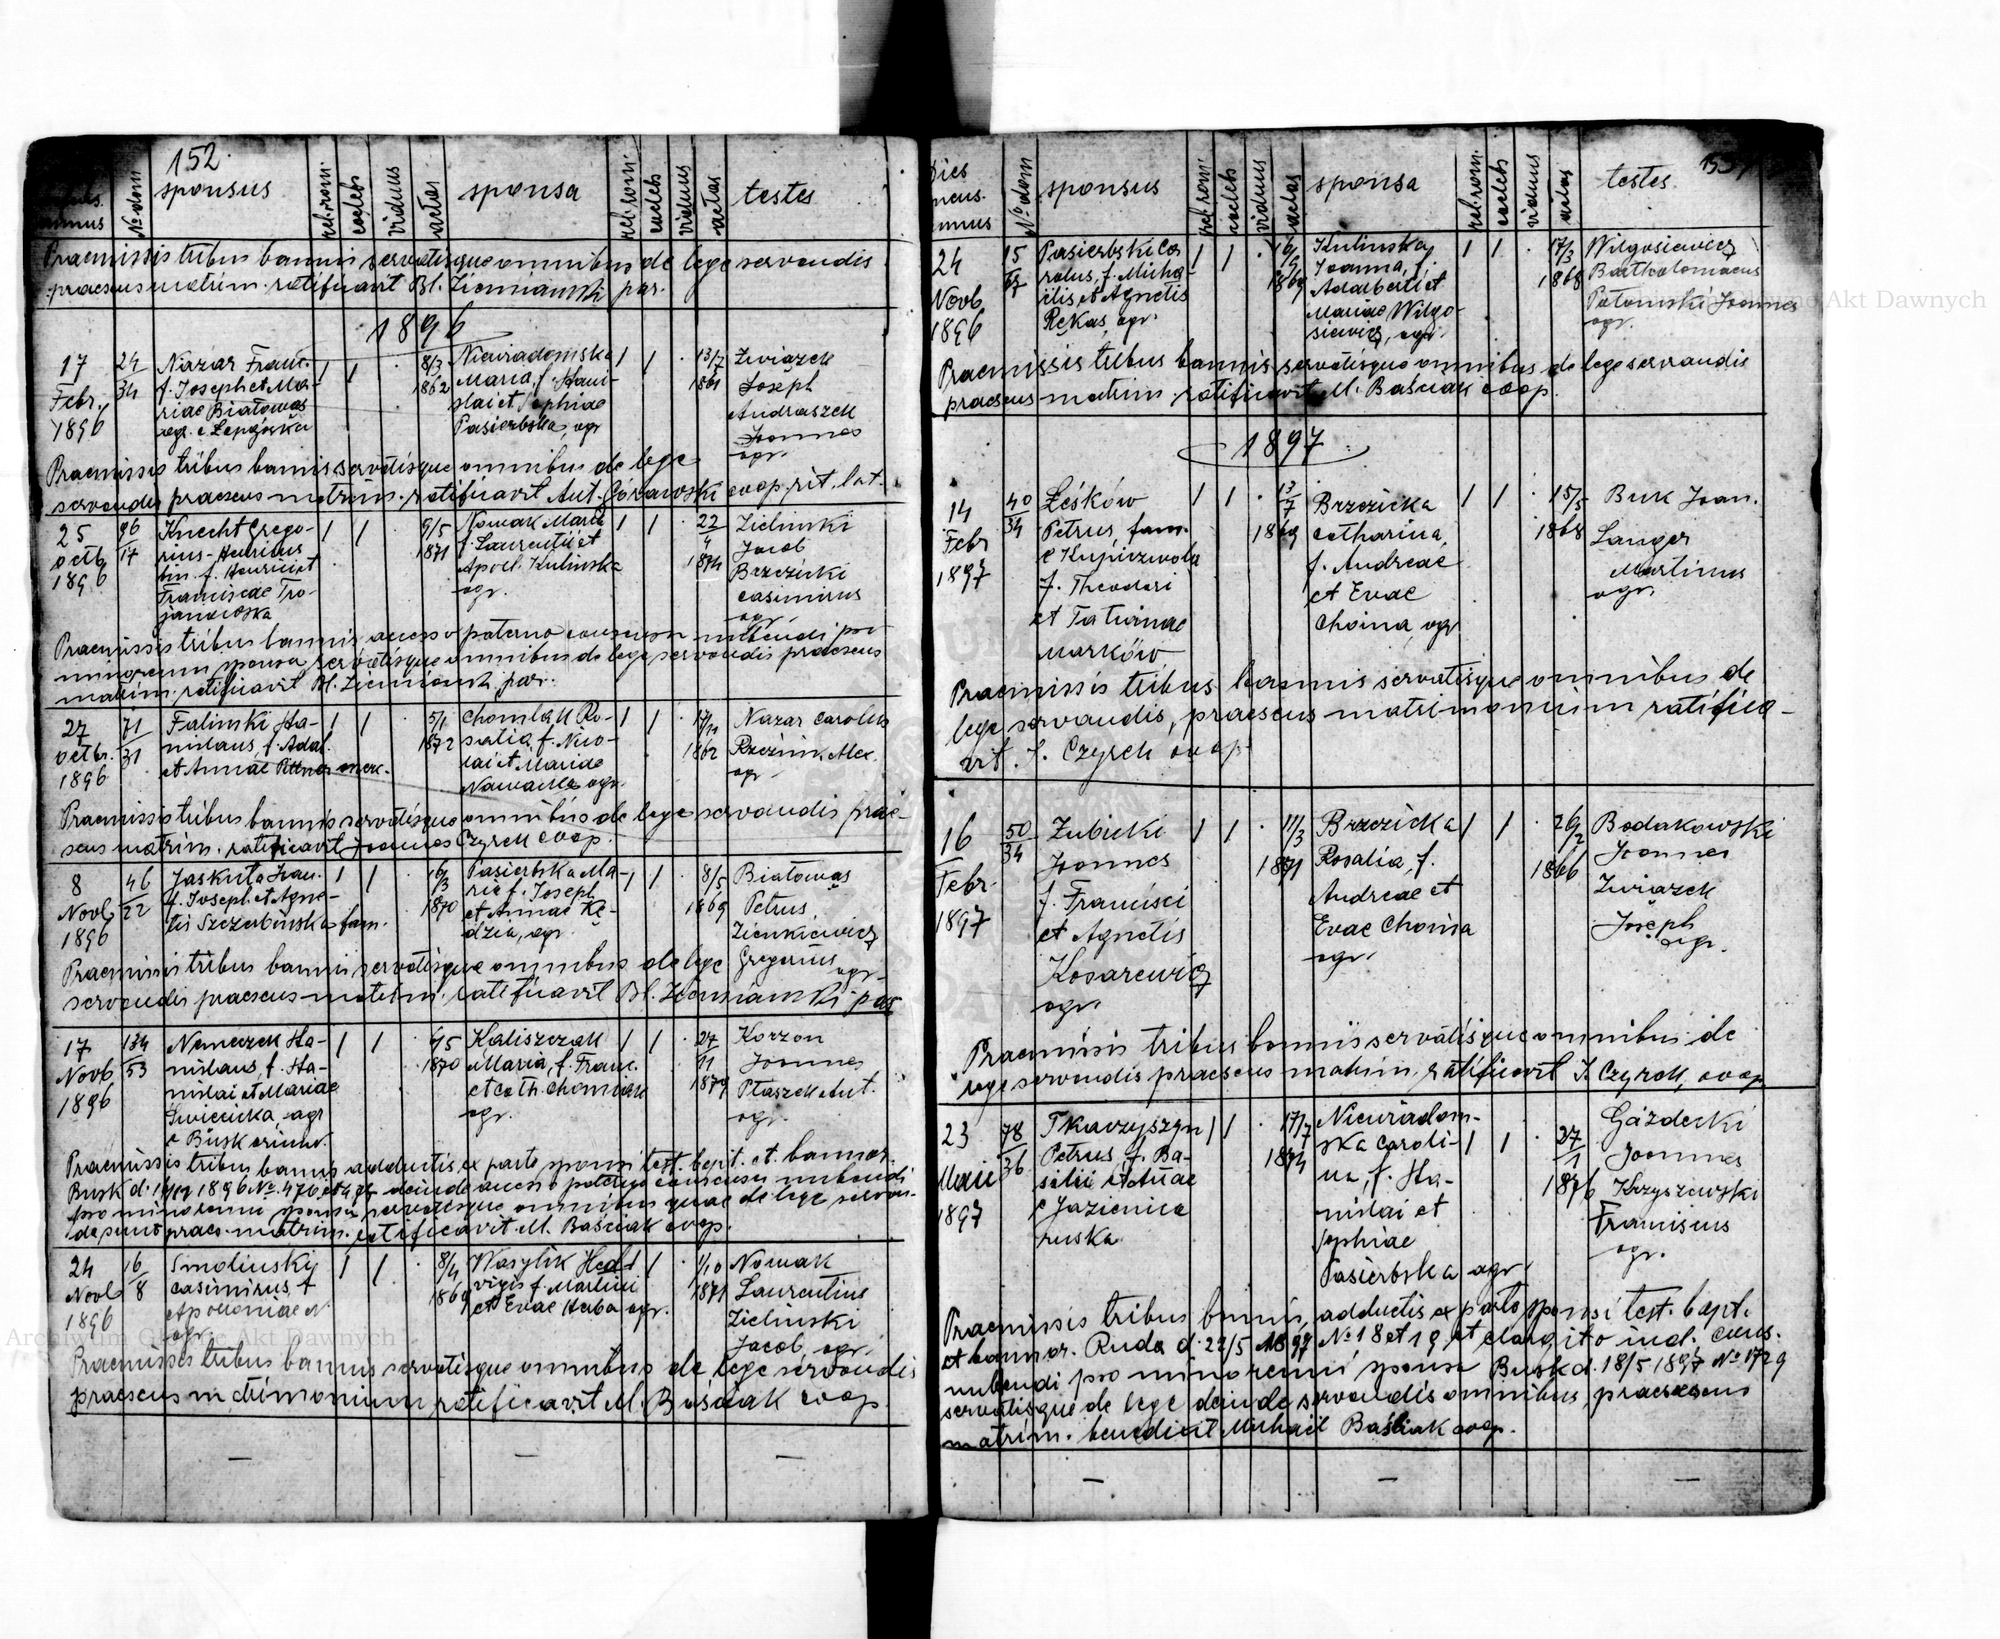 152.
sponsus
sponsa
testes
annus
No dom
rel. rom.
caelebs
viduus
aetas
rel. rom.
caelebs
viduus
aetas
Praemissis tribus bannis servatisque omnibus de lege servandis
praesens matrim. ratificavit Bl. Ziemianski par.
1896
17
Febr.
1896
24
34
Nazar Franc.
f. Joseph et Ma-
riae Białowąs
agr. e
8/3
1862
Niewiadomska
Maria, f. Stani-
slai et Sophiae
Pasierbska, agr
13/7
1861
Związek
Joseph
Andraszek
Joannes
agr.
Praemissis tribus bannis servatisque omnibus de lege
servandis praesens matrim. ratificavit Ant. Górawski coop. rit. lat.
25
octb
1896
96
17
Knecht Grego-
rius-
f. Henrici et
Franciscae Tro-
janowska
9/5
1871
Nowak Maria
f. Laurentii et
Apoll. Kulinska
agr.
22
4
1874
Zielinski
Jacob
Brzezicki
Casimirus
agr.
Praemissis tribus bannis, paterno consensu nubendi pro
minorenni sponsa, servatisque omnibus de lege servandis praesens
matrim. ratificavit Bl. Ziemianski par.
27
octbr.
1896
71
31
Falinski Sta-
nislaus, f. Adal.
et Annae
5/1
1872
Chomlak Ro-
salia, f. Nico-
lai et Mariae
agr.
17/11
1862
Nazar Carolus
agr.
Praemissis tribus bannis servatisque omnibus de lege servandis prae-
sens matrim. ratificavit Joannes Czyrek coop.
8
Novb
1896
46
22
Jaskuła Joan.
f. Joseph. et Agne-
tis Szczerbinska fam.
16/3
1870
Pasierbska Ma-
ria f. Joseph
et Annae Kę-
dzia, agr.
8/5
1869
Białowąs
Petrus
Zienkiewicz
Gregorius
agr.
Praemissis tribus bannis servatisque omnibus de lege
servandis praesens matrim. ratificavit Bl. Ziemianski par
17
Novb
1896
134
53
Nemeczek Sta-
nislaus, f. Sta-
nislai et Mariae
Swiecicka, agr
e Busk
6/5
1870
Kaliszczak
Maria, f. Franc.
et Cath. Chomiak
agr.
27
11
1874
Korzon
Joannes
Ptaszek Ant.
agr.
Praemissis tribus bannis adductis ex parte sponsi test. bapt. et bannor.
Busk d. 1896 No. 476 deinde paterno consensu nubendi
pro minorenni sponsa servatisque omnibus quae de lege servan-
da sunt praes. matrim. ratificavit M. Baściak coop.
24
Novb
1896
16
8
Smolinsky
Casimirus, f
Apolloniae N.
agr.
8/4
1869
Wasylik Hed-
vigis f. Martini
et Evae Huba agr.
1/10
1871
Nowak
Laurentius
Zielinski
Jacob, agr.
Praemissis tribus bannis servatisque omnibus de lege servandis
praesens matrimonium ratificavit M. Baściak coop.
153
dies
mens.
annus
No dom
sponsus
rel. rom
caelebs
viduus
aetas
sponsa
rel. rom.
caelebs
viduus
aetas
testes.
24
Novb
1896
15
Pasierbski Ca
rolus, f. Micha-
elis et Agnetis
Rękas, agr.
1869
Kulinska
Joanna, f.
Adalberti et
Mariae Wilgo-
siewicz, agr.
17/3
1868
Wilgosiewicz
Bartholomaeus
Joannes
agr.
Praemissis tribus bannis servatisque omnibus de lege servandis
praesens matrim. ratificavit M. Baściak coop.
1897
14
Febr
1897
40
34
Leśków
Petrus, fam.
e Kupiczwola
f. Theodori
et Tatianae
Marków
13
7
1869
Brzezicka
Catharina,
f. Andreae
et Evae
Choina, agr
15/5
1868
Buk Joan.
Langer
Martinus
agr.
Praemissis tribus bannis servatisque omnibus de
lege servandis, praesens matrimonium ratifica-
vit J. Czyrek coop.
16
Febr.
1897
50
34
Zubicki
Joannes
f. Francisci
et Agnetis
Kosarewicz
agr.
11/3
1871
Brzezicka
Rosalia, f.
Andreae et
Evae Choina
agr.
26/2
1866
Bodakowski
Joannes
Związek
Joseph
agr.
Praemissis tribus bannis servatisque omnibus de
lege servandis praesens matrim. ratificavit J. Czyrek, coop
23
Maii
1897
78
36
Tkaczyszyn
Petrus f. Ba-
silii et Annae
e Jazienica
ruska
17/7
1874
Niewiadom-
ska Caroli-
na, f. Sta-
nislai et
Sophiae
Pasierbska agr.
27
1
1876
Gazdecki
Joannes
Krzyszewski
Franciscus
agr.
Praemissis tribus bannis, adductis ex parte sponsi test. bapt.
et bannor. Ruda d. 22/5 1897 No 18 et 19, et jud. cons.
nubendi pro minorenni sponsa Busk d. 18/5 1897 No 1729
servatisque de lege deinde servandis omnibus, praesens
matrim. benedixit Michael Baściak coop.
Archiwum Główne Akt Dawnych